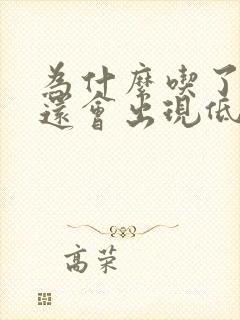 為什麼喫了
還會出現低
高荣